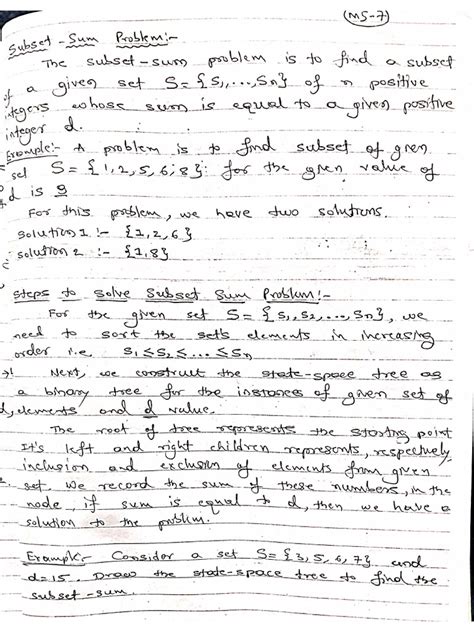 (MS-7)
Subset-Sum Problem:-
The subset-sum problem is to find a subset
of a given set S = {S1,...,Sn} of n positive
integers whose sum is equal to a given positive
integer d.
Example:- A problem is to find subset of given
set S = {1,2,5,6,8} for the given value of
d is 9
For this problem, we have two solutions.
Solution 1 :- {1,2,6}
Solution 2 :- {1,8}
Steps to Solve Subset Sum Problem!-
For the given set S = {S1,S2,...,Sn}, we
need to sort the set's elements in increasing
order i.e S1≤S2≤...≤Sn
Next, we construct the state-space tree as
a binary tree for the instances of given set of
elements and d value.
The root of tree represents the starting point
It's left and right children represents, respectively,
inclusion and exclusion of elements from given
set. We record the sum of these numbers, in the
node, if sum is equal to d, then we have a
solution to the problem.
Example:- Consider a set S={3,5,6,7} and
d=15. Draw the state-space tree to find the
subset-sum.